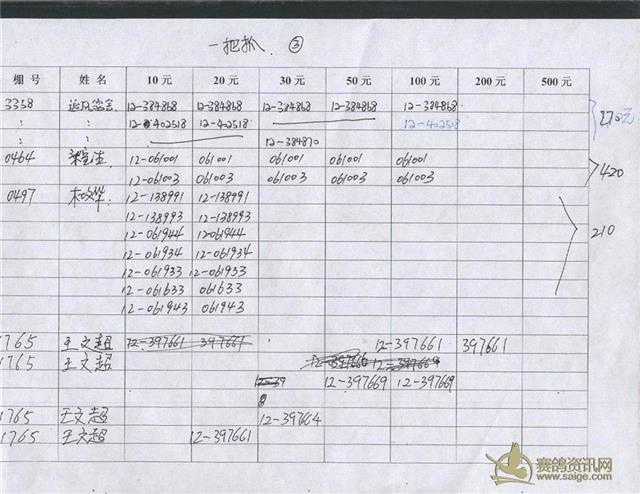 一把抓 ③
棚号 姓名 10元 20元 30元 50元 100元 200元 500元
3338 12-384868 12-384868 12-384868 12-384868 12-384868
: : 12-402518 12-402518 12-402518 270元
: : 12-384870
0464 12-061001 061001 061001 061001 061001
12-061003 061003 061003 061003 061003 420
0497 12-138991 12-138991
12-138993 12-138993
12-061944 12-061944
12-061934 12-061934 210
12-061933 12-061933
12-061633 061633
12-061943 061943
1765 王文超 12-397661 397661 12-397661 397661
1765 王文超
12-39 12-397669 12-397669
1765 王文超 12-397664
1765 王文超 12-397661
赛鸽资讯网
www.saige.com